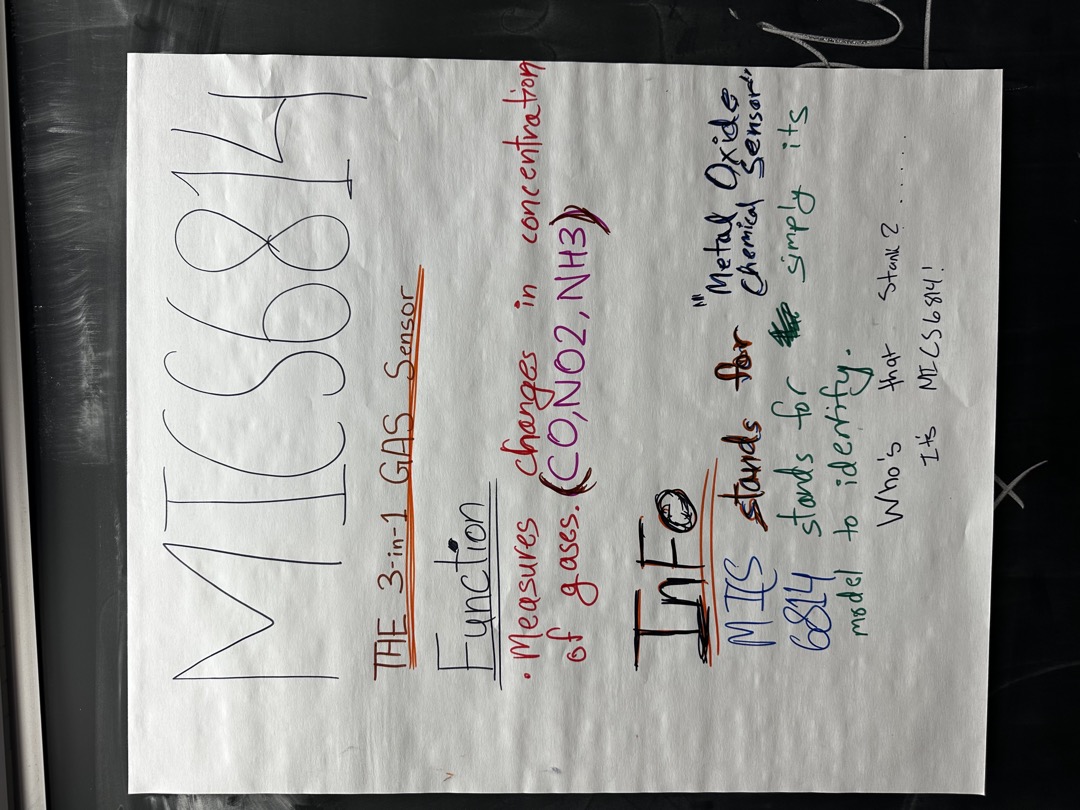 MICS6814
THE 3-in-1 GAS Sensor
Function
• Measures changes in concentration
of gases. (CO, NO2, NH3)
InFo
MICS stands for "Metal Oxide
Chemical Sensor"
6814 stands for simply its
model to identify.
Who's that Stank? ......
It's MICS6814!